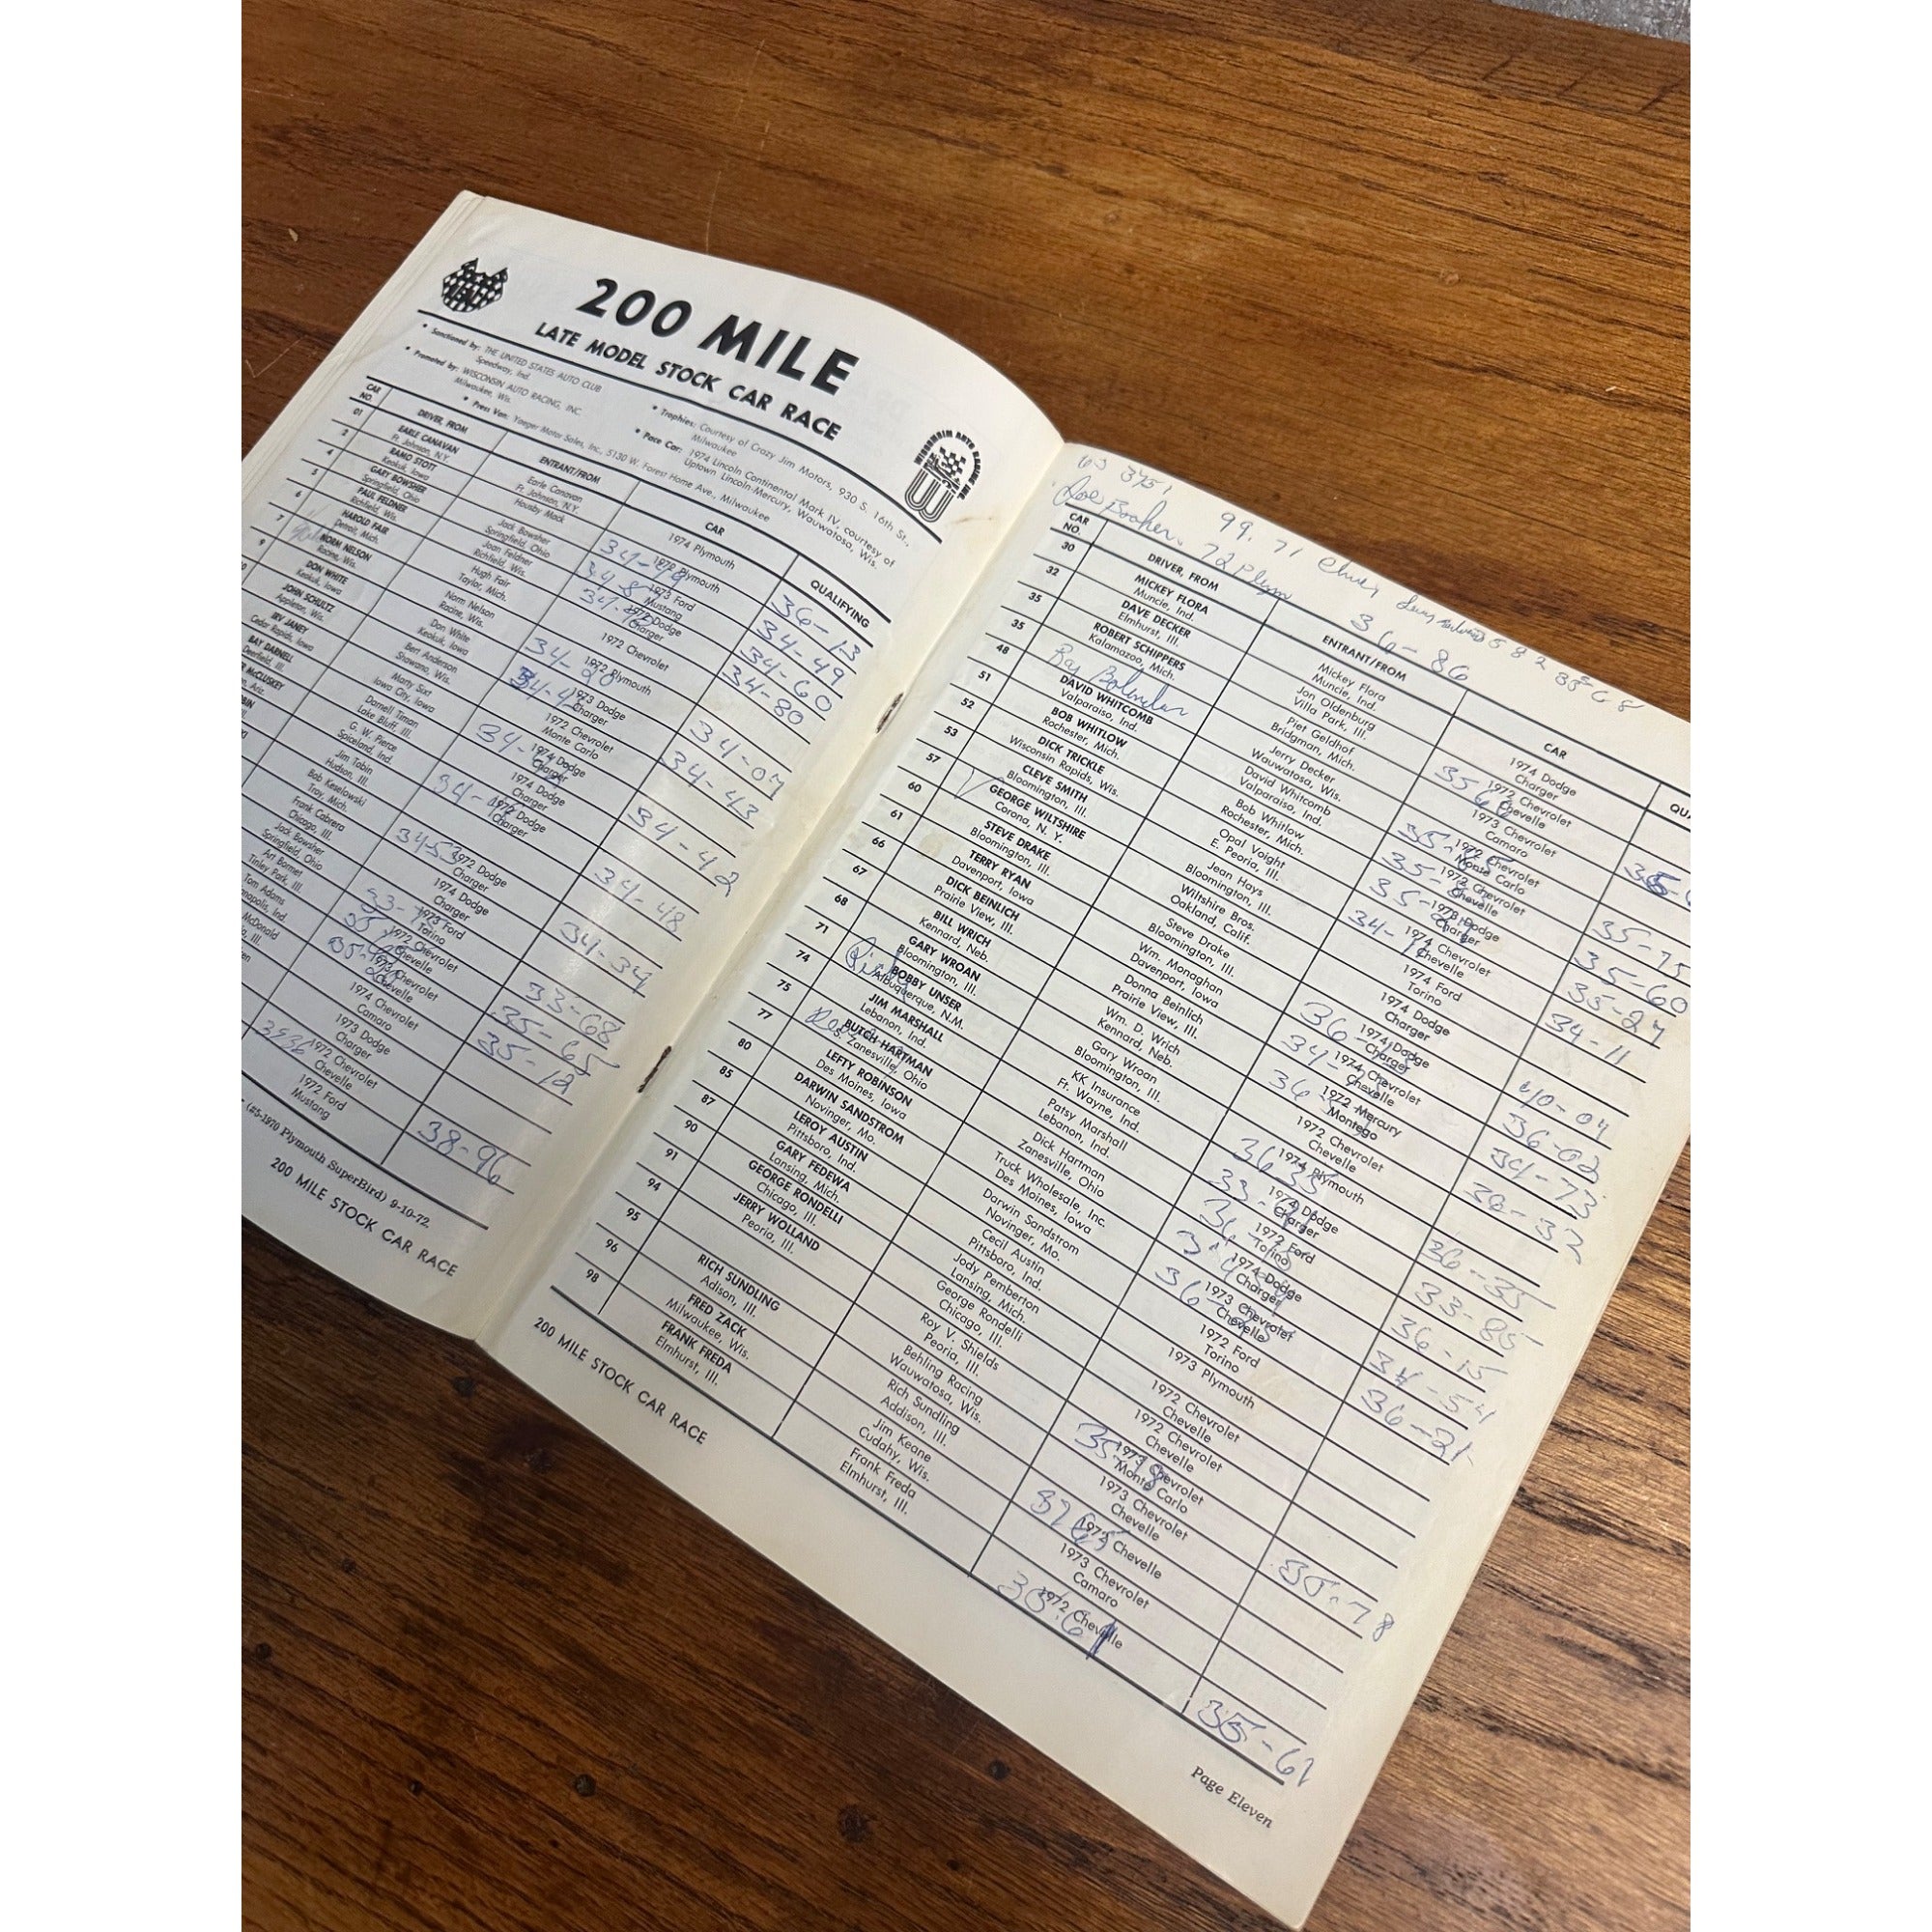 200 MILE
LATE MODEL STOCK CAR RACE
• Sanctioned by: THE UNITED STATES AUTO CLUB
Speedway, Ind.
• Promoted by: WISCONSIN AUTO RACING, INC.
Milwaukee, Wis.
• Trophies: Courtesy of Crazy Jim Motors, 930 S. 16th St.,
Milwaukee
• Pace Car: 1974 Lincoln Continental Mark IV, courtesy of
Uptown Lincoln-Mercury, Wauwatosa, Wis.
• Press Van: Yaeger Motor Sales, Inc., 5130 W. Forest Home Ave., Milwaukee
WISCONSIN AUTO RACING INC.
CAR NO.
DRIVER, FROM
ENTRANT/FROM
CAR
QUALIFYING
01
2
4
5
6
7
9
EARLE CANAVAN
Ft. Johnson, N.Y.
RAMO STOTT
Keokuk, Iowa
GARY BOWSHER
Springfield, Ohio
PAUL FELDNER
Richfield, Wis.
HAROLD FAIR
Detroit, Mich.
NORM NELSON
Racine, Wis.
DON WHITE
Keokuk, Iowa
JOHN SCHULTZ
Appleton, Wis.
IRV JANEY
Cedar Rapids, Iowa
BAY DARNELL
Deerfield, Ill.
McCLUSKEY
Earle Canavan
Ft. Johnson, N.Y.
Housby Mack
Jack Bowsher
Springfield, Ohio
Joan Feldner
Richfield, Wis.
Hugh Fair
Taylor, Mich.
Norm Nelson
Racine, Wis.
Don White
Keokuk, Iowa
Bert Anderson
Shawano, Wis.
Marty Sixt
Iowa City, Iowa
Darnell Timan
Lake Bluff, Ill.
G. W. Pierce
Spiceland, Ind.
Jim Tobin
Hudson, Ill.
Bob Keselowski
Troy, Mich.
Frank Cabrera
Chicago, Ill.
Jack Bowsher
Springfield, Ohio
Art Bormet
Tinley Park, Ill.
Tom Adams
McDonald
1974 Plymouth
1972 Plymouth
1973 Ford
Mustang
1972 Dodge
Charger
1972 Chevrolet
1972 Plymouth
1973 Dodge
Charger
1972 Chevrolet
Monte Carlo
1974 Dodge
Charger
1974 Dodge
Charger
1972 Dodge
Charger
1972 Dodge
Charger
1974 Dodge
Charger
1973 Ford
Torino
1972 Chevrolet
Chevelle
1973 Chevrolet
Chevelle
1974 Chevrolet
Camaro
1973 Dodge
Charger
1972 Chevrolet
Chevelle
1972 Ford
Mustang
36-13
34-49
34-60
34-80
34-07
34-43
34-42
34-48
34-34
33-68
35-65
35-12
38-96
(#5-1970 Plymouth SuperBird) 9-10-72.
200 MILE STOCK CAR RACE
99. 71 Chev
72 Plym
36-86
CAR NO.
DRIVER, FROM
ENTRANT/FROM
CAR
30
32
35
35
48
51
52
53
57
60
61
66
67
68
71
74
75
77
80
85
87
90
91
94
95
96
98
MICKEY FLORA
Muncie, Ind.
DAVE DECKER
Elmhurst, Ill.
ROBERT SCHIPPERS
Kalamazoo, Mich.
DAVID WHITCOMB
Valparaiso, Ind.
BOB WHITLOW
Rochester, Mich.
DICK TRICKLE
Wisconsin Rapids, Wis.
CLEVE SMITH
Bloomington, Ill.
GEORGE WILTSHIRE
Corona, N. Y.
STEVE DRAKE
Bloomington, Ill.
TERRY RYAN
Davenport, Iowa
DICK BEINLICH
Prairie View, Ill.
BILL WRICH
Kennard, Neb.
GARY WROAN
Bloomington, Ill.
BOBBY UNSER
Albuquerque, N.M.
JIM MARSHALL
Lebanon, Ind.
BUTCH HARTMAN
S. Zanesville, Ohio
LEFTY ROBINSON
Des Moines, Iowa
DARWIN SANDSTROM
Novinger, Mo.
LEROY AUSTIN
Pittsboro, Ind.
GARY FEDEWA
Lansing, Mich.
GEORGE RONDELLI
Chicago, Ill.
JERRY WOLLAND
Peoria, Ill.
RICH SUNDLING
Adison, Ill.
FRED ZACK
Milwaukee, Wis.
FRANK FREDA
Elmhurst, Ill.
Mickey Flora
Muncie, Ind.
Jon Oldenburg
Villa Park, Ill.
Piet Geldhof
Bridgman, Mich.
Jerry Decker
Wauwatosa, Wis.
David Whitcomb
Valparaiso, Ind.
Bob Whitlow
Rochester, Mich.
Opal Voight
E. Peoria, Ill.
Jean Hays
Bloomington, Ill.
Wiltshire Bros.
Oakland, Calif.
Steve Drake
Bloomington, Ill.
Wm. Monaghan
Davenport, Iowa
Donna Beinlich
Prairie View, Ill.
Wm. D. Wrich
Kennard, Neb.
Gary Wroan
Bloomington, Ill.
KK Insurance
Ft. Wayne, Ind.
Patsy Marshall
Lebanon, Ind.
Dick Hartman
Zanesville, Ohio
Truck Wholesale, Inc.
Des Moines, Iowa
Darwin Sandstrom
Novinger, Mo.
Cecil Austin
Pittsboro, Ind.
Jody Pemberton
Lansing, Mich.
George Rondelli
Chicago, Ill.
Roy V. Shields
Peoria, Ill.
Behling Racing
Wauwatosa, Wis.
Rich Sundling
Addison, Ill.
Jim Keane
Cudahy, Wis.
Frank Freda
Elmhurst, Ill.
1974 Dodge
Charger
1972 Chevrolet
Chevelle
1973 Chevrolet
Camaro
1972 Chevrolet
Monte Carlo
1972 Chevrolet
Chevelle
1973 Dodge
Charger
1974 Chevrolet
Chevelle
1974 Ford
Torino
1974 Dodge
Charger
1974 Dodge
Charger
1974 Chevrolet
Chevelle
1972 Mercury
Montego
1972 Chevrolet
Chevelle
1974 Plymouth
1974 Dodge
Charger
1972 Ford
Torino
1974 Dodge
Charger
1973 Chevrolet
Chevelle
1972 Ford
Torino
1973 Plymouth
1972 Chevrolet
Chevelle
1972 Chevrolet
Chevelle
1973 Chevrolet
Monte Carlo
1973 Chevrolet
Chevelle
1972 Chevelle
1973 Chevrolet
Camaro
1972 Chevelle
35-75
35-60
35-27
34-11
40-04
36-02
34-73
36-32
36-35
33-85
36-15
34-54
36-21
35-78
35-61
200 MILE STOCK CAR RACE
Page Eleven